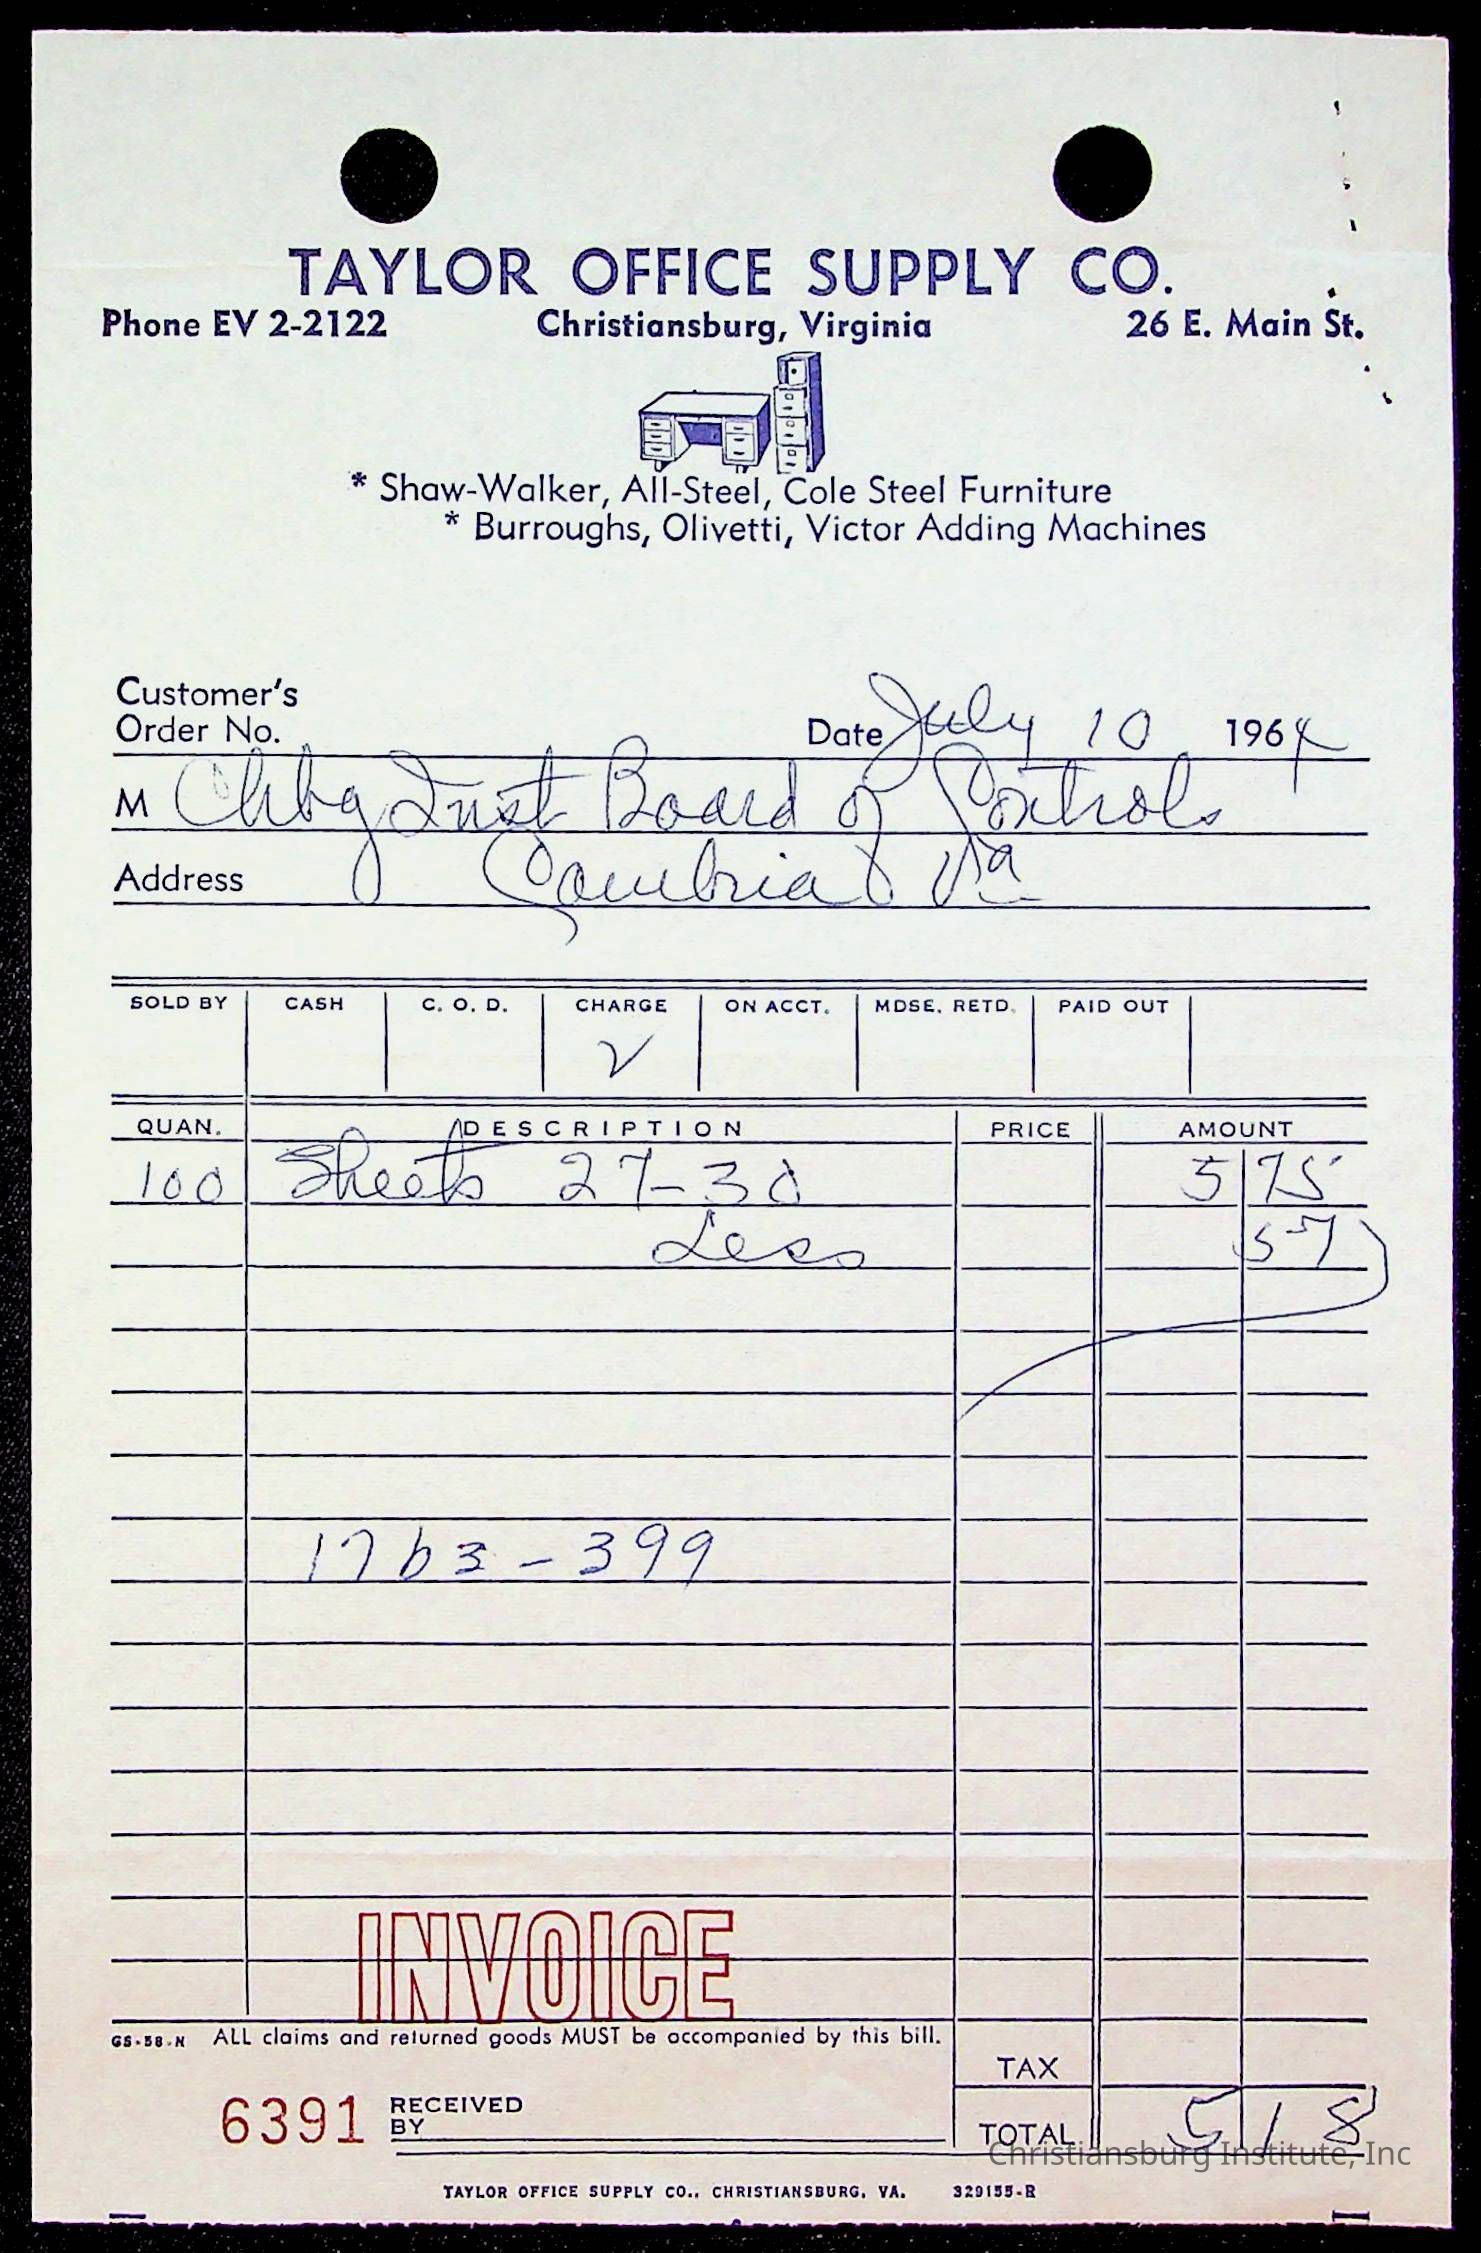 TAYLOR OFFICE SUPPLY CO.
Phone EV 2-2122 Christiansburg, Virginia 26 E. Main St.
* Shaw-Walker, All-Steel, Cole Steel Furniture
* Burroughs, Olivetti, Victor Adding Machines
Customer's
Order No.
Date July 10 1964
M Chbg Inst Board of Controls
Address Cambria Va
SOLD BY CASH C. O. D. CHARGE ON ACCT. MDSE. RETD. PAID OUT
✓
QUAN. DESCRIPTION PRICE AMOUNT
100 Sheets 27-30 5 75
Less 57
1763-399
INVOICE
GS-58-N ALL claims and returned goods MUST be accompanied by this bill.
TAX
6391 RECEIVED
BY
TOTAL 5 18
Christiansburg Institute, Inc
TAYLOR OFFICE SUPPLY CO., CHRISTIANSBURG, VA. 329155-R